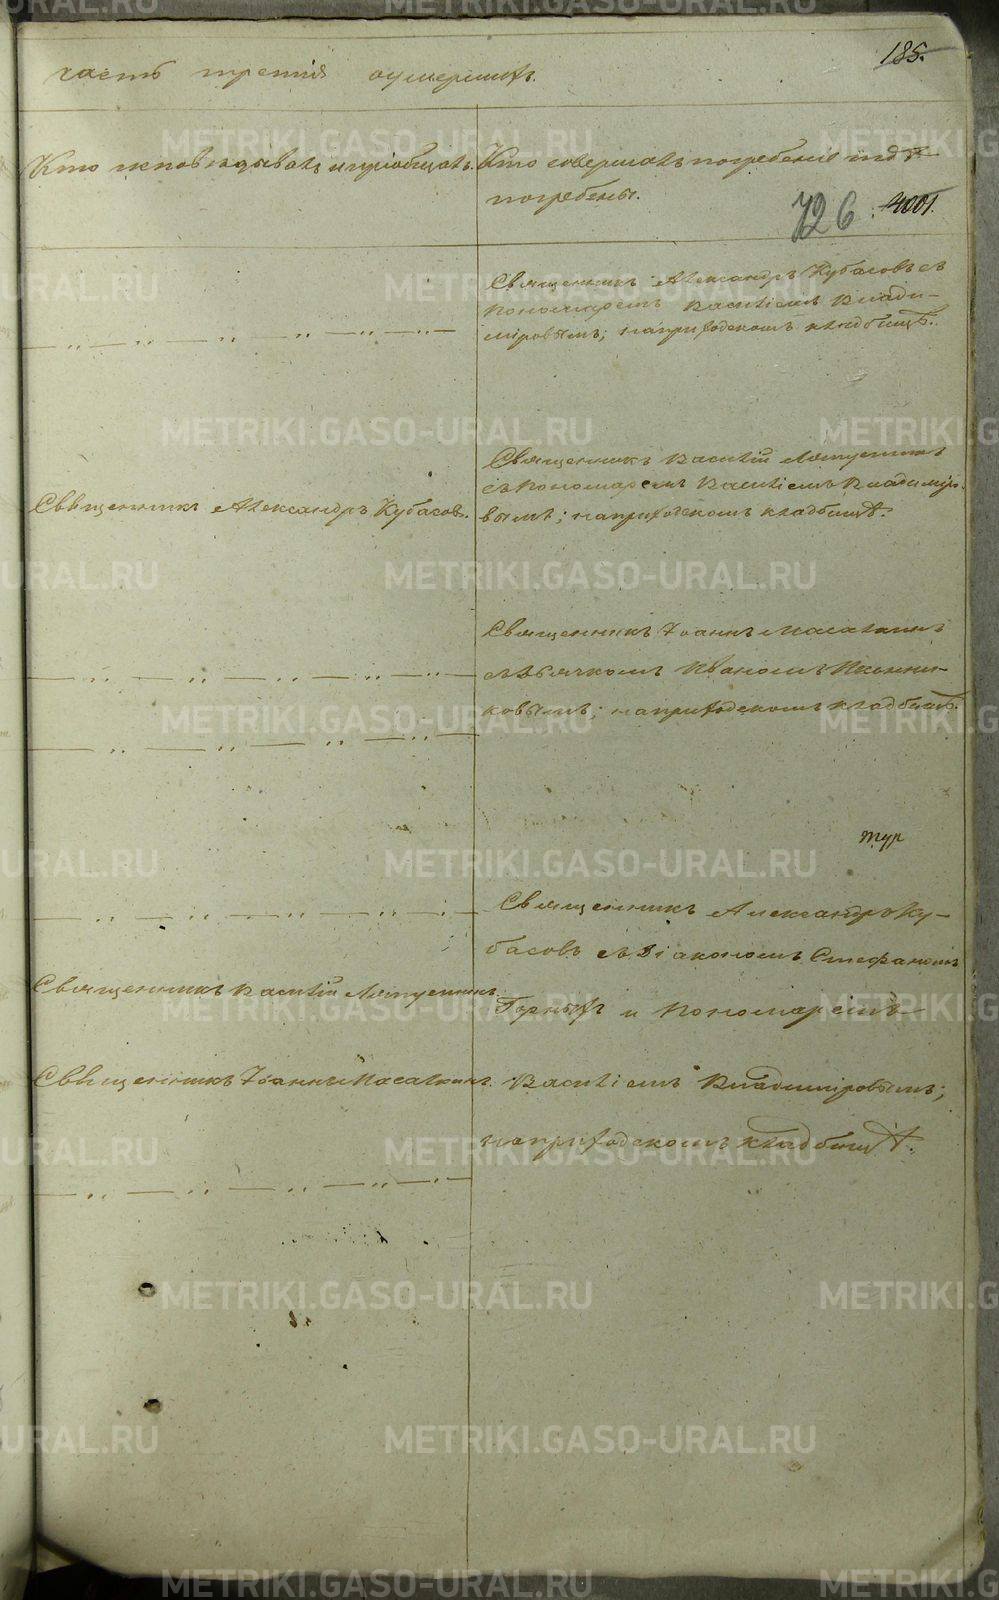 185.
часть третія оумершихъ.
Кто исповѣдывалъ и пріобщалъ.
Кто совершалъ погребеніе и гдѣ
погребены.
726
4001.
Священникъ Александръ Кубасовъ съ
Пономаремъ Василіемъ Влади-
міровымъ; на приходскомъ кладбищѣ.
Священникъ Василій
Священникъ Александръ Кубасовъ.
съ Пономаремъ Василіемъ Владимiро-
вымъ; на приходскомъ кладбищѣ.
Священникъ Іоаннъ Масалкинъ
съ Дьячкомъ Иваномъ Иконни-
ковымъ; на приходскомъ кладбищѣ.
тур
Священникъ Александръ Ку-
басовъ съ Діакономъ Стефаномъ
Священникъ Василій
Горныхъ и Пономаремъ
Священникъ Іоаннъ Масалкинъ.
Василіемъ Владиміровымъ;
на приходскомъ кладбищѣ.
METRIKI.GASO-URAL.RU